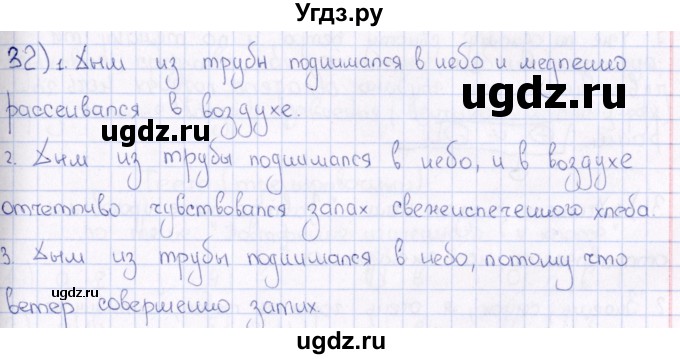 Угдз.ру
32) 1. Дым из трубы поднимался в небо и медленно
рассеивался в воздухе.
ugdz.ru
ugdz.ru
2. Дым из трубы поднимался в небо, и в воздухе
отчетливо чувствовался запах свежеиспеченного хлеба.
3. Дым из трубы поднимался в небо, потому что
ветер совершенно затих.
ugdz.ru
ugdz.ru